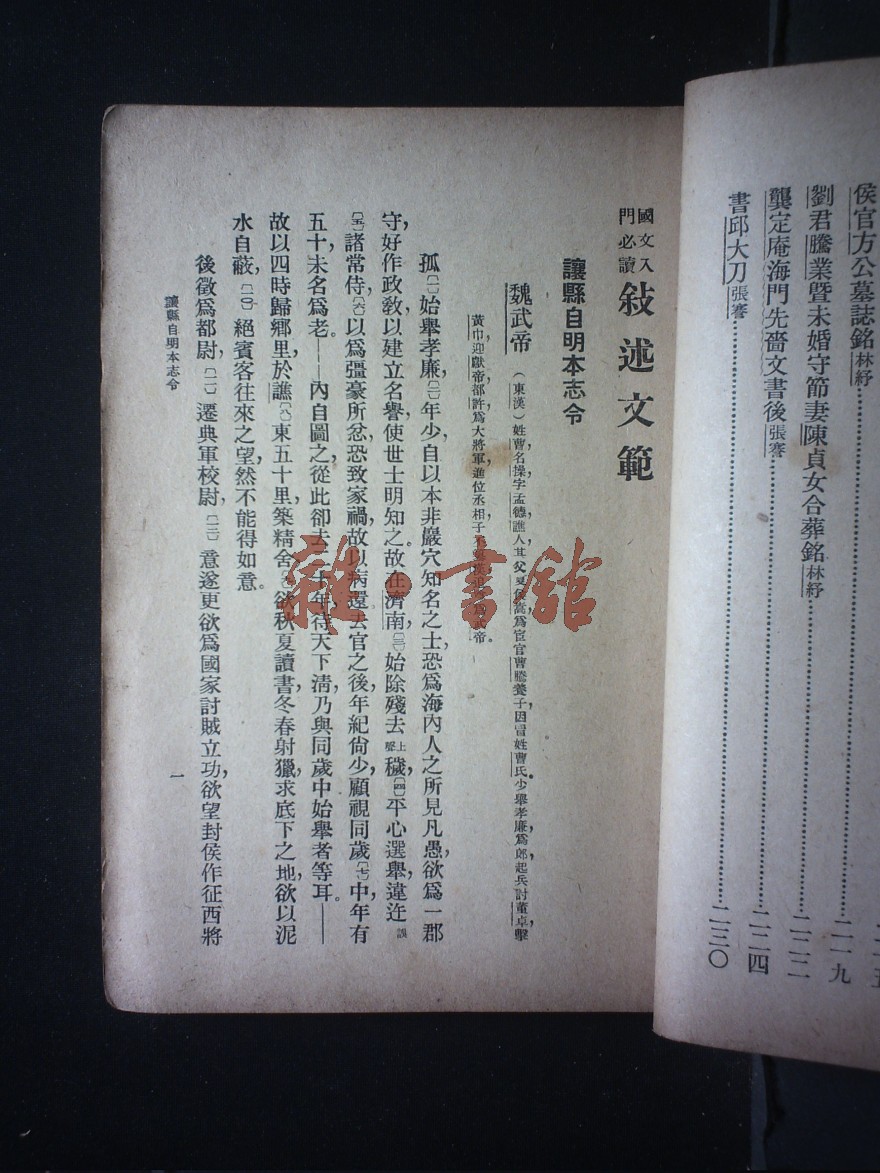 侯官方公墓誌銘 林紓
劉君騰業暨未婚守節妻陳貞女合葬銘 林紓……二一九
龔定庵海門先嗇文書後 張謇……二二二
書邱大刀 張謇……二二四
二三〇
國文入門必讀 敍述文範
讓縣自明本志令
魏武帝 （東漢）姓曹名操字孟德譙人其父夏侯嵩爲宦官曹騰養子因冒姓曹氏。少舉孝廉爲郎起兵討董卓擊
黃巾迎獻帝都許爲大將軍進位丞相子 武帝。
孤，〔一〕始舉孝廉，〔二〕年少，自以本非巖穴知名之士，恐爲海內人之所見凡愚，欲爲一郡
守，好作政敎，以建立名譽，使世士明知之。故在濟南，〔三〕始除殘去上聲穢，〔四〕平心選舉，違迕誤
〔五〕諸常侍，〔六〕以爲彊豪所忿，恐致家禍，故以病還去官之後，年紀尙少，顧視同歲〔七〕中，年有
五十，未名爲老。——內自圖之，從此卻去二十年，待天下淸，乃與同歲中始舉者等耳。——
故以四時歸鄉里，於譙〔八〕東五十里，築精舍，〔九〕欲秋夏讀書，冬春射獵，求底下之地，欲以泥
水自蔽，〔一〇〕絕賓客往來之望，然不能得如意。
後徵爲都尉，〔一一〕遷典軍校尉，〔一二〕意遂更欲爲國家討賊立功，欲望封侯作征西將
讓縣自明本志令
一
雜·書館